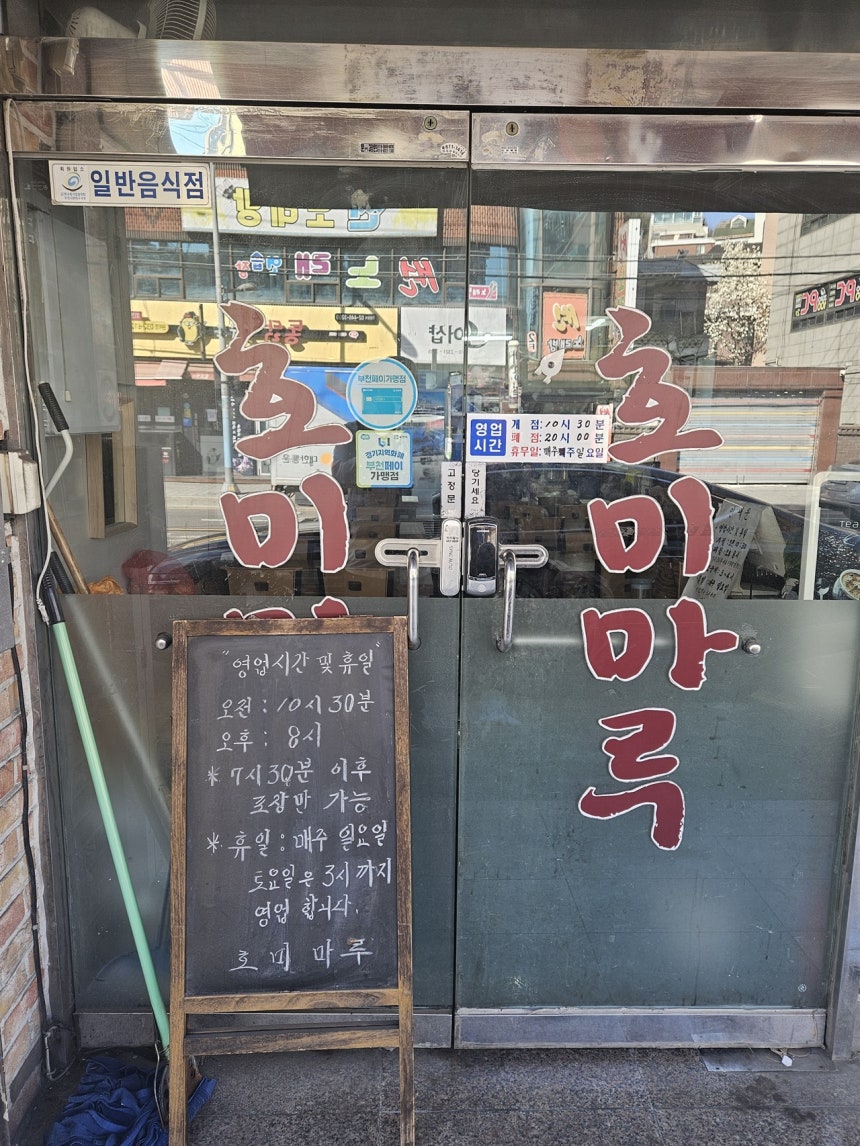 일반음식점
호미마루
호미마루
부천페이가맹점
경기지역화폐
부천페이
가맹점
영업
시간
개 점: 10시 30분
폐 점: 20시 00분
휴무일: 매주 일요일
고정문
당기세요
"영업시간 및 휴일"
오전 : 10시 30분
오후 : 8시
* 7시30분 이후
포장만 가능
* 휴일 : 매주 일요일
토요일은 3시까지
영업 합니다.
호미 마루
노래연습장
대한통운
PC
PC